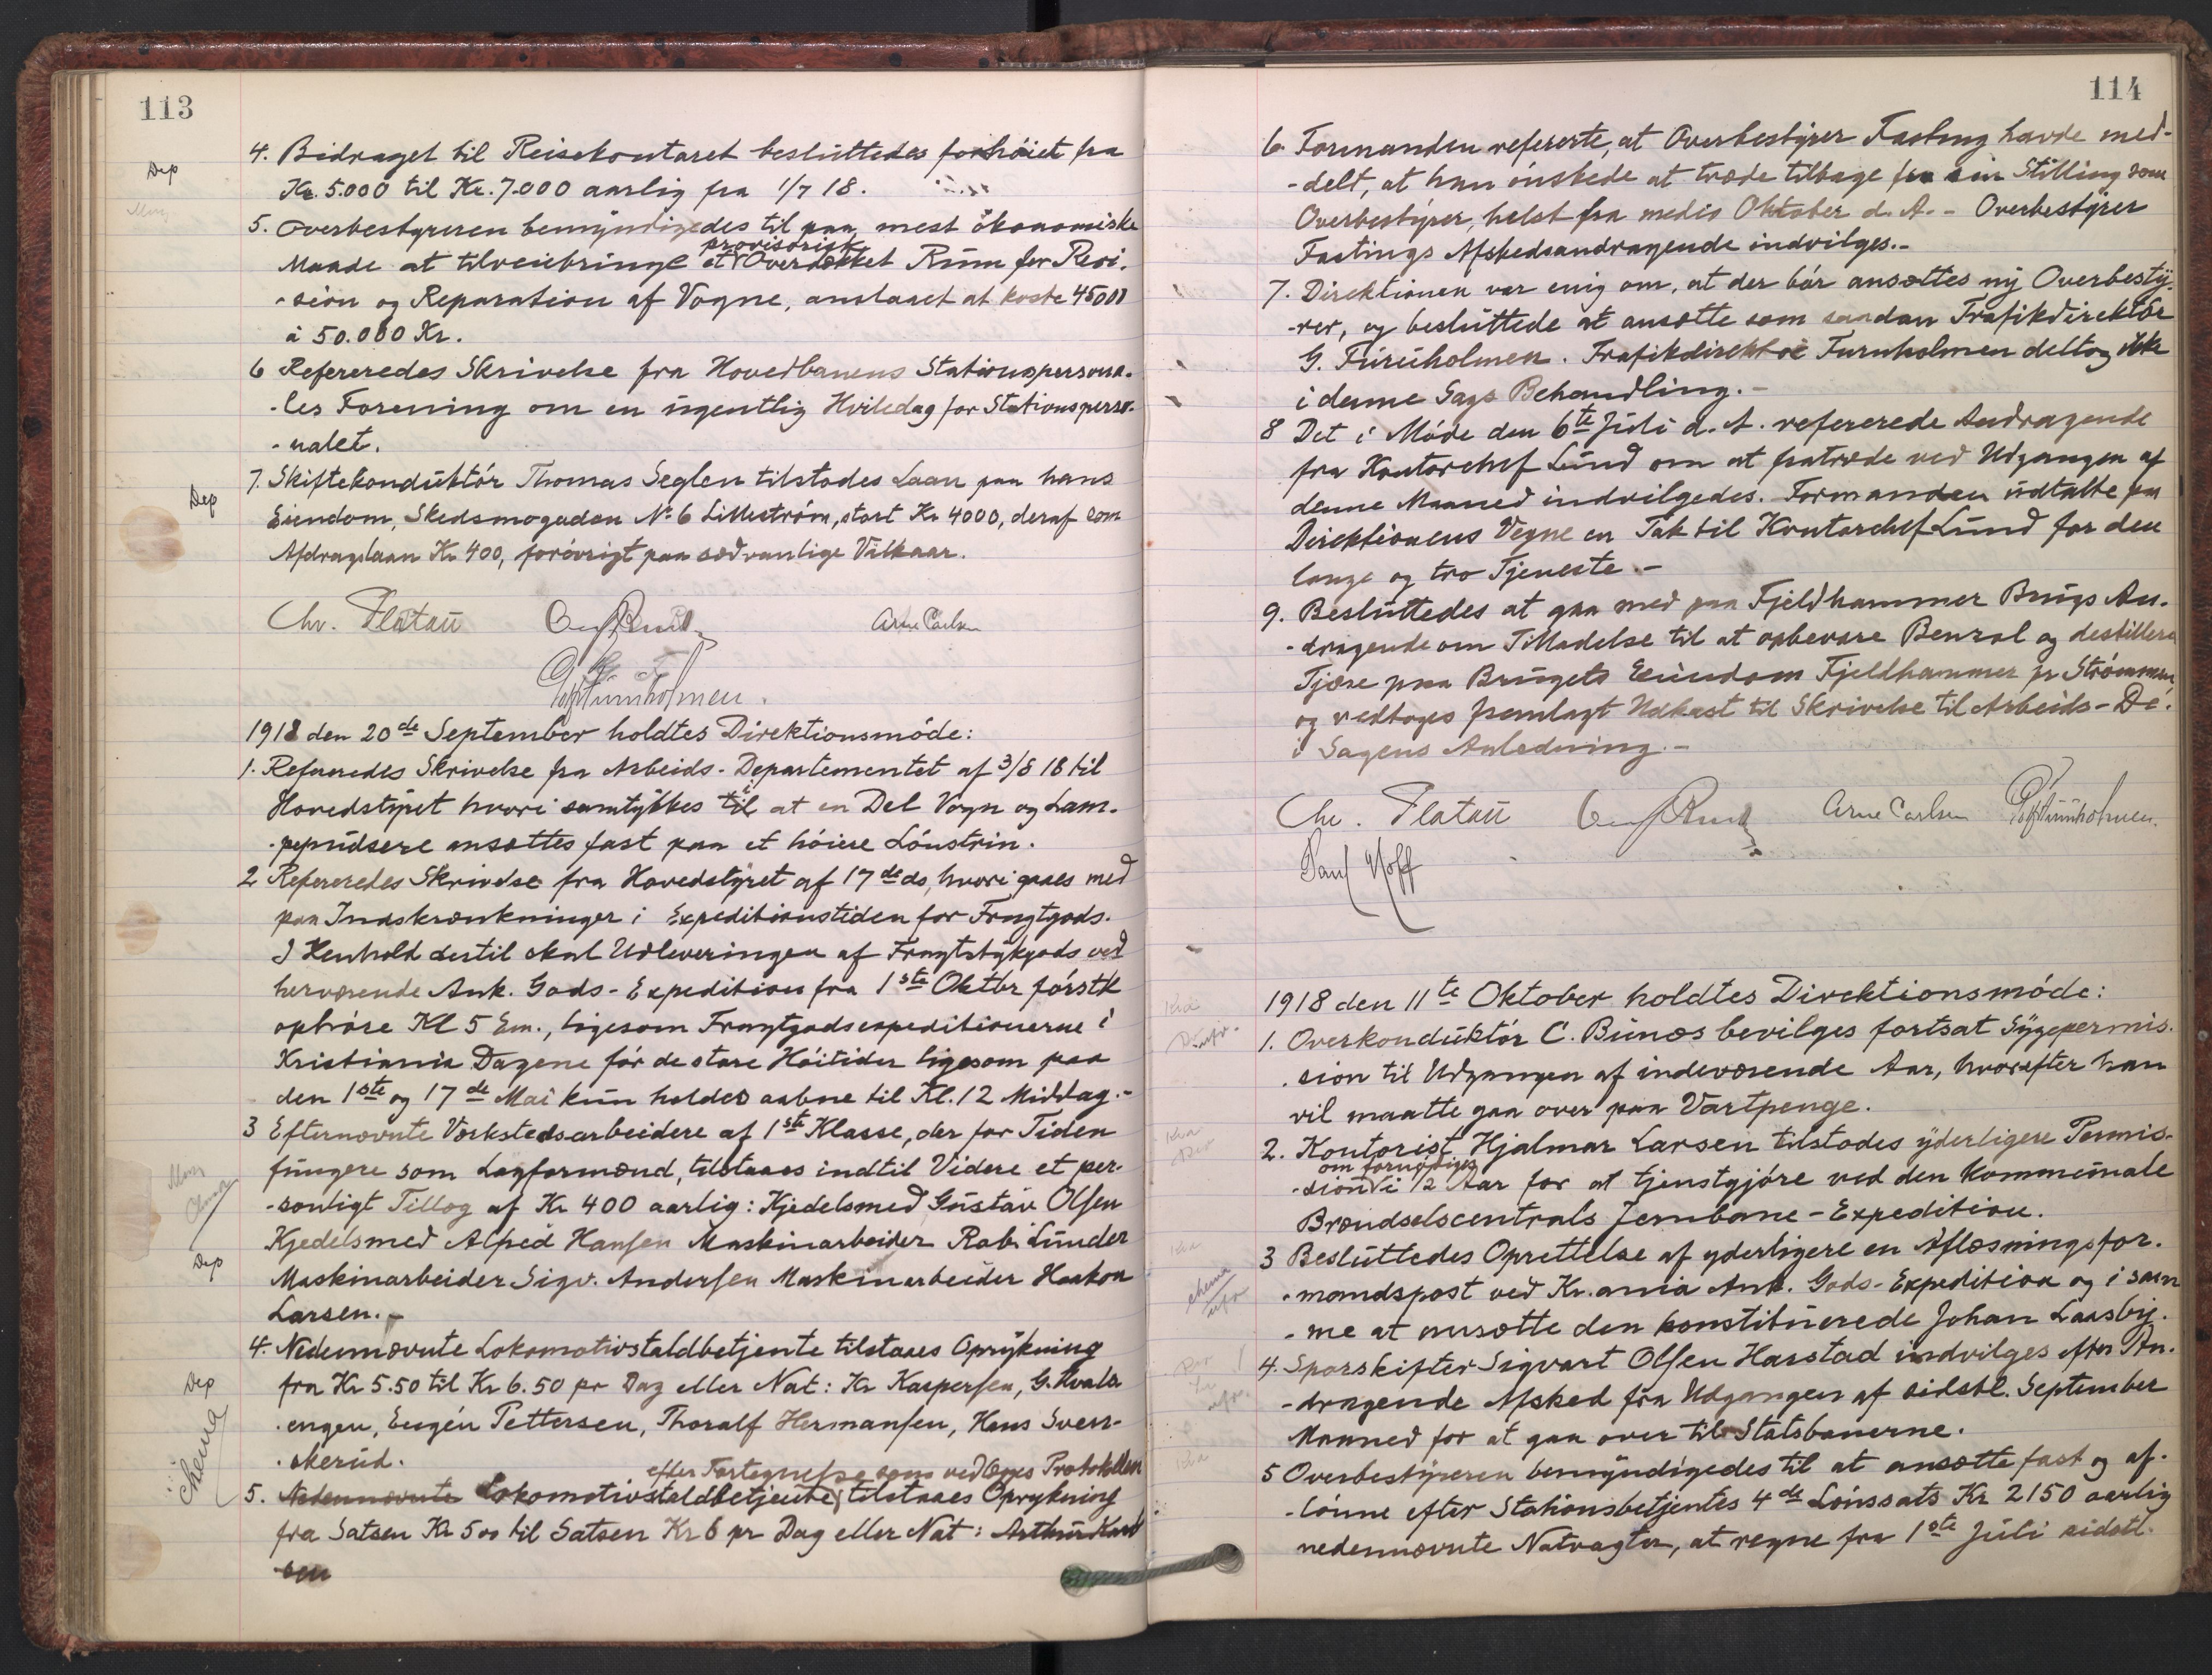 113
Dep
4. Bidraget til Reisekontoret besluttedes forhöiet fra
Kr. 5.000 til Kr. 7.000 aarlig fra 1/7 18.
5. Overbestyreren bemyndigedes til paa mest ökonomiske
Maade at tilveiebringe et provisorisk Overdækket Rum for Revi-
-sion og Reparation af Vogne, anslaaet at koste 45000
à 50.000 Kr.
6 Refereredes Skrivelse fra Hovedbanens Stationspersona-
-les Forening om en ugentlig Hviledag for Stationsperso-
-nalet.
Dep
7. Skiftekonduktör Thomas Seglen tilstodes Laan paa hans
Eiendom, Skedsmogaden No 6 Lilleström, stort Kr 4000, deraf som
Afdragslaan Kr 400, forövrigt paa sædvanlige Vilkaar.
Chr. Platou Arne Carlsen
1918 den 20de September holdtes Direktionsmöde:
1. Refereredes Skrivelse fra Arbeids-Departementet af 3/8 18 til
Hovedstyret hvori samtykkes i til at en Del Vogn og Lam-
-pepudsere ansættes fast paa et höiere Lönstrin.
2 Refereredes Skrivelse fra Hovedstyret af 17de ds, hvori gaaes med
paa Indskrænkninger i Expeditionstiden for Fragtgods.
I Henhold dertil skal Udleveringen af Fragtstykgods ved
herværende Ank. Gods-Expedition fra 1ste Oktbr förstk
ophöre Kl 5 Em., ligesom Fragtgodsexpeditionerne i
Kristiania Dagene för de store Höitider ligesom paa
den 1ste og 17de Mai kun holdes aabne til Kl. 12 Middag.-
3 Efternævnte Værkstedsarbeidere af 1ste Klasse, der for Tiden
fungere som Lagformænd, tilstaaes indtil Videre et per-
-sonligt Tillæg af Kr 400 aarlig: Kjedelsmed Gustav Olsen
Kjedelsmed Alfred Hansen Maskinarbeider Rob. Lunder
Dep
Maskinarbeider Sigv. Andersen Maskinarbeider Haakon
Larsen.-
4. Nedennævnte Lokomotivstaldbetjente tilstaaes Oprykning
Dep
fra Kr 5.50 til Kr 6.50 pr Dag eller Nat: Kr Kaspersen, G. Hvals-
-engen, Eugén Pettersen, Thoralf Hermansen, Hans Svens-
-kerud.
efter Fortegnelse som vedlægges Protokollen
5. Nedennævnte Lokomotivstaldbetjente tilstaaes Oprykning
fra Satsen Kr 5.00 til Satsen Kr 6 pr Dag eller Nat: Arthur Karl
sen
114
6 Formanden refererte, at Overbestyrer Fasting havde med-
-delt, at han önskede at træde tilbage fra sin Stilling som
Overbestyrer, helst fra medio Oktober d. A. - Overbestyrer
Fastings Afskedsandragende indvilges.-
7. Direktionen var enig om, at der bör ansættes ny Overbesty-
-rer, og besluttede at ansætte som saadan Trafikdirektör
G. Furuholmen. Trafikdirektör Furuholmen deltog ikke
i denne Sags Behandling.-
8 Det i Möde den 6te Juli d. A. refererede Andragende
fra Kontorchef Lund om at fratræde ved Udgangen af
denne Maaned indvilgedes. Formanden udtalte paa
Direktionens Vegne en Tak til Kontorchef Lund for den
lange og tro Tjeneste.-
9. Besluttedes at gaa med paa Fjeldhammer Brugs An-
-dragende om Tilladelse til at opbevare Benzol og destillere
Tjære paa Brugets Eiendom Fjeldhammer pr Strömmen
og vedtoges fremlagt Udkast til Skrivelse til Arbeids-De-
i Sagens Anledning.-
Chr. Platou Arne Carlsen
Paul Hoff
1918 den 11te Oktober holdtes Direktionsmöde:
1. Overkonduktör C. Bunæs bevilges fortsat Sygepermis-
-sion til Udgangen af indeværende Aar, hvorefter han
vil maatte gaa over paa Vartpenge.
2. Kontorist Hjalmar Larsen tilstodes yderligere Permis-
-sion om fornödiges i 1/2 Aar for at tjenstgjöre ved den kommunale
Brændselscentrals Jernbane-Expedition.
3 Besluttedes Oprettelse af yderligere en Aflæsningsfor-
-mandspost ved Kr.ania Ank. Gods-Expedition og i sam
-me at ansætte den konstituerede Johan Laasby.
4. Sporskifter Sigvart Olsen Harstad indvilges efter An-
-dragende Afsked fra Udgangen af sidstl. September
Maaned for at gaa over til Statsbanerne.
5 Overbestyreren bemyndigedes til at ansætte fast og af-
-lönne efter Stationsbetjentes 4de Lönssats Kr 2150 aarlig
nedennævnte Natvagter, at regne fra 1ste Juli sidstl.